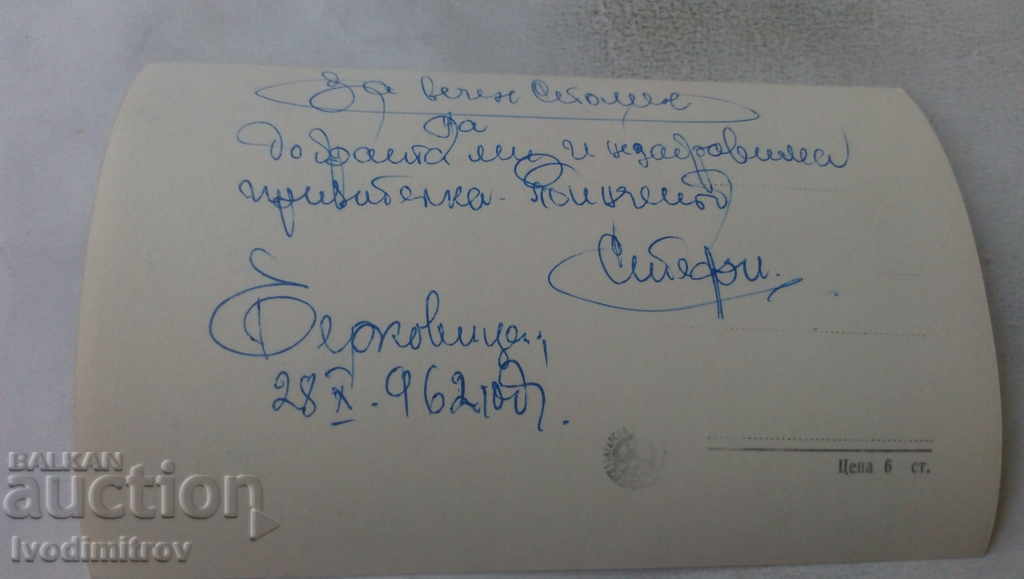 За вечен спомен
на
добрата ми и
приятелка
Стефи.
Берковица,
28 X. 962 год.
Цена 6 ст.
BALKAN
auction
Ivodimitrov